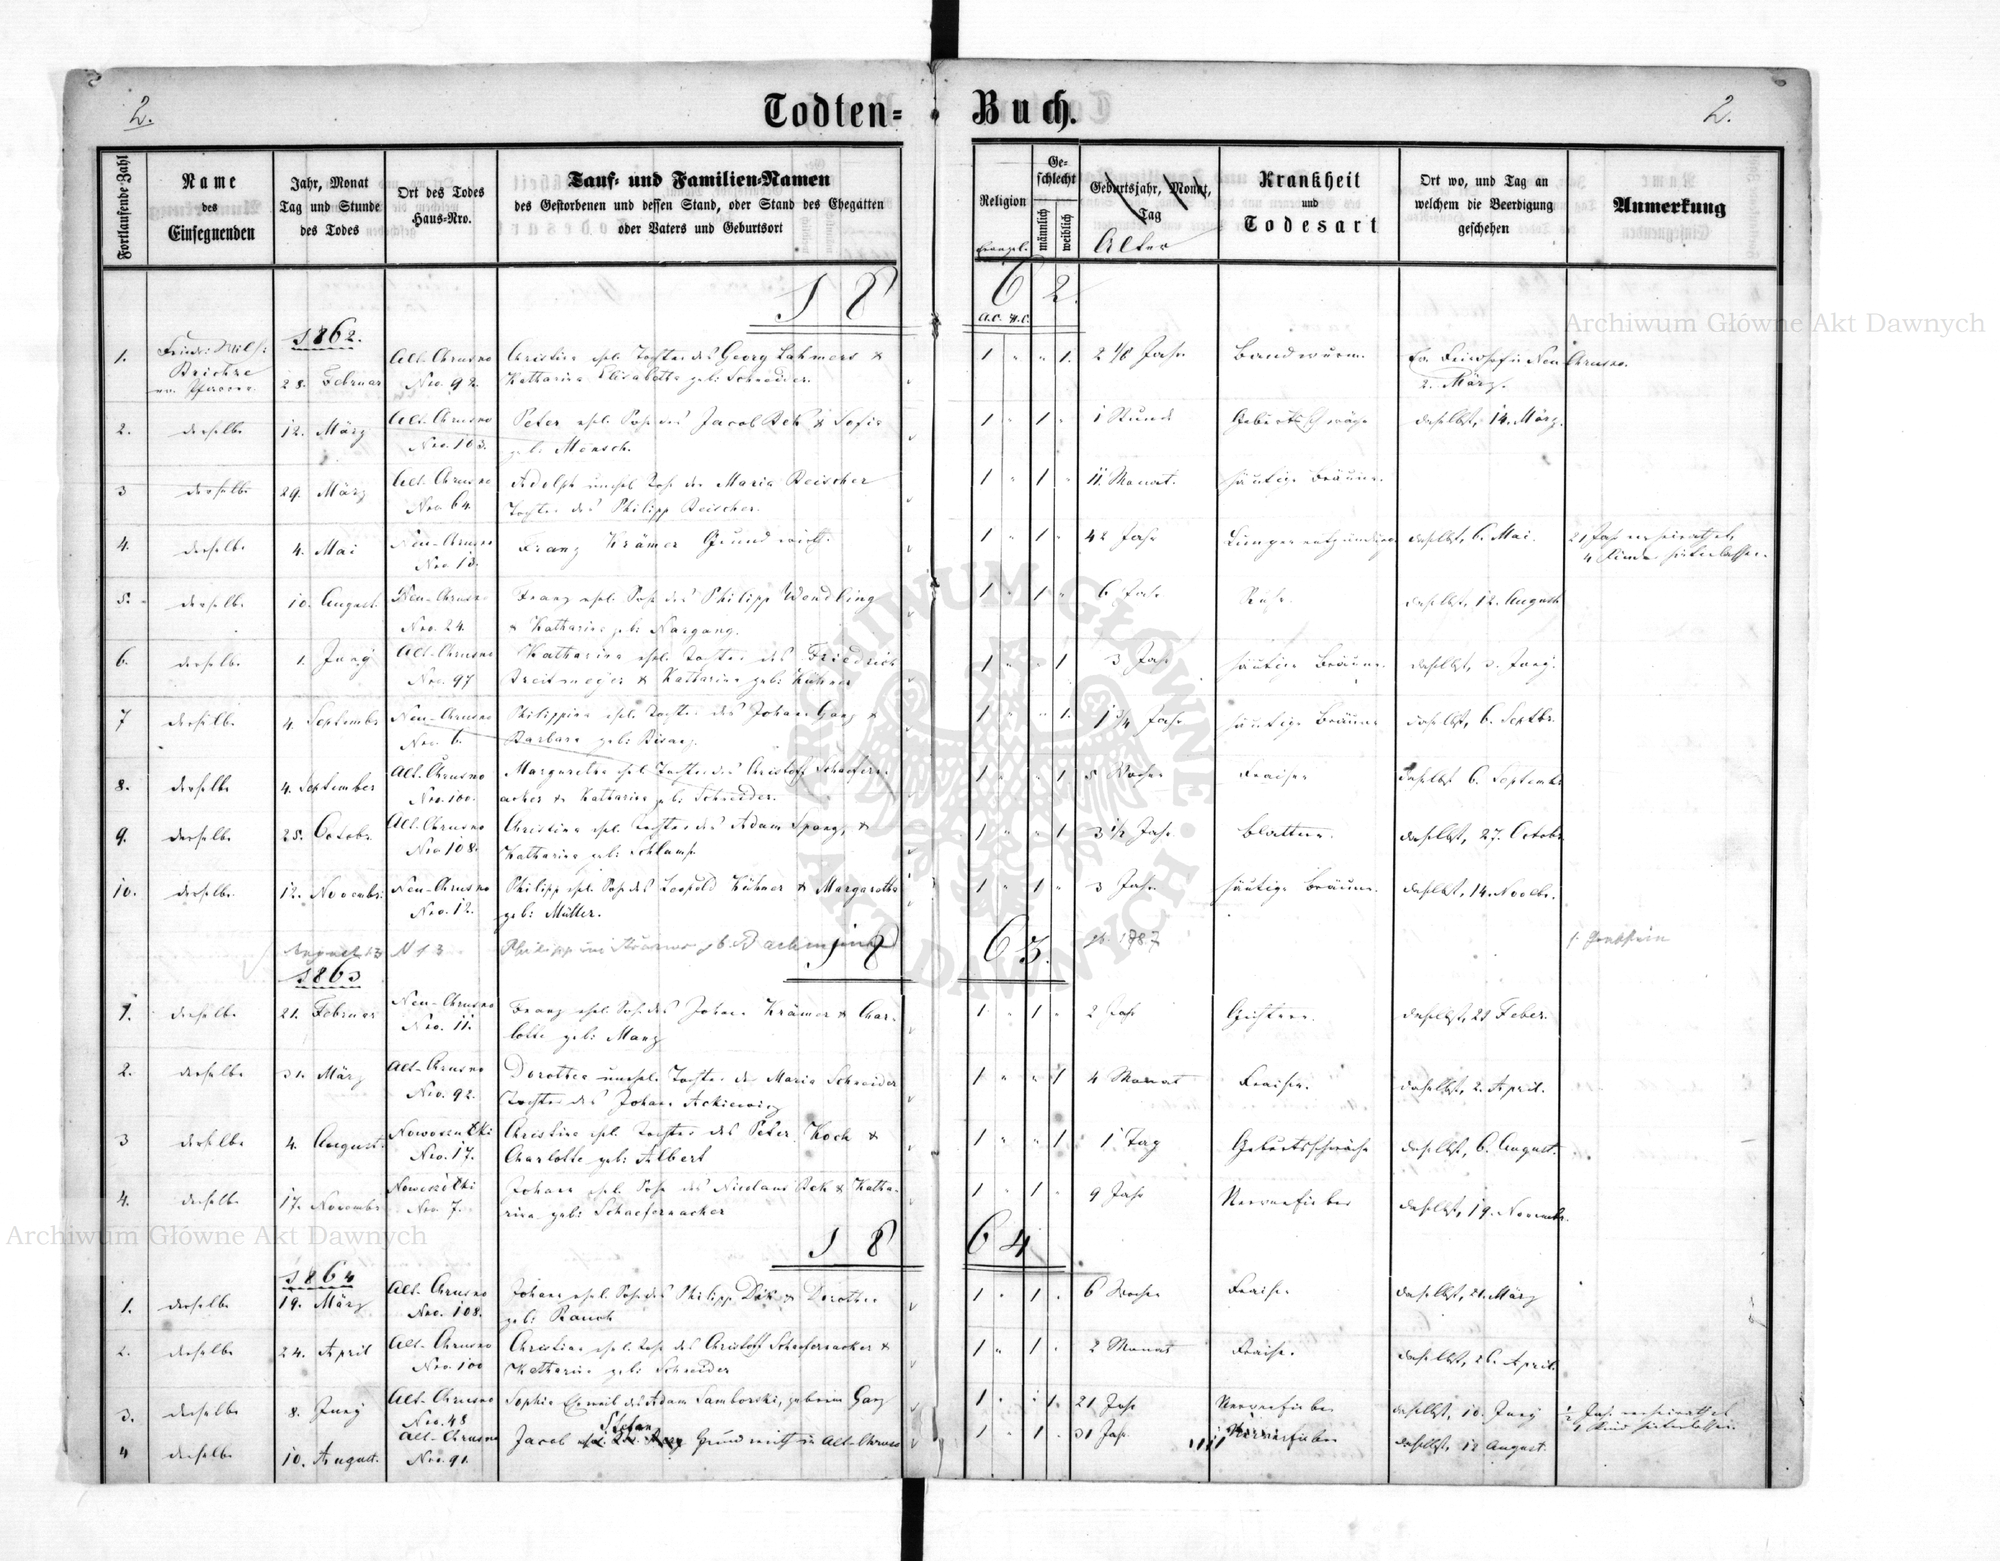 2.
Todten-Buch.
2.
Fortlaufende Zahl
Name des Einsegnenden
Jahr, Monat Tag und Stunde des Todes
Ort des Todes Haus-Nro.
Tauf- und Familien-Namen
des Gestorbenen und dessen Stand, oder Stand des Ehegatten
oder Vaters und Geburtsort
Religion
Geschlecht
männlich
weiblich
Geburtsjahr, Monat, Tag
Alter
Krankheit und Todesart
Ort wo, und Tag an welchem die Beerdigung geschehen
Anmerkung
18 62.
A.C. H.C.
1862.
1. Alt-Chrusno Christina ehel. Tochter des Georg Lahmers & 1 " " 1. 2 1/8 Jahr Bandwurm
Pfarrer. 28. Februar Nro. 92. Katharina Elisabetha geb: Schneider. 2. März.
2. derselbe 12. März Alt-Chrusno Peter ehel. Sohn des Jacob Bek & Sofie 1 " 1 " 1 Stunde Geburtsschwäche daselbst, 14. März.
Nro. 103. geb: Mensch.
3 derselbe 29. März Alt-Chrusno Adolph unehel. Sohn der Maria Reischer 1 " 1 " 11 Monat. häutige Bräune.
Nro. 64. Tochter des Philipp Reischer.
4. derselbe 4. Mai Neu-Chrusno Franz Krämer Grundwirth 1 " 1 " 42 Jahr Lungenentzündung daselbst, 6. Mai. 21 Jahr verheirathet,
Nro. 13. 4 Kinder hinterlassen.
5. derselbe 10. August. Neu-Chrusno Franz ehel. Sohn des Philipp Wendling 1 " 1 " 6 Jahr Ruhr. daselbst, 12. August
Nro. 24. & Katharina geb: Nargang.
6. derselbe 1. Juny Alt-Chrusno Katharina ehel. Tochter des Friedrich 1 " " 1 3 Jahr häutige Bräune. daselbst, 3. Juny.
Nro. 97 Breitmeyer & Katharina geb: Kühner
7 derselbe 4. September Neu-Chrusno Philippina ehel. Tochter des Johann Ganz & 1 " " 1. 1 3/4 Jahr häutige Bräune daselbst, 6. Septbr.
Nro. 6. Barbara geb:
8. derselbe 4. September Alt-Chrusno Margaretha ehel. Tochter des Christoff Schaefern- 1 " " 1 5 Wochen Fraisen daselbst 6. September
Nro. 100. acker & Katharina geb: Schneider.
9. derselbe 25. Octobr. Alt-Chrusno Christina ehel. Tochter des Adam Spang, & 1 " " 1 3 1/2 Jahr Blattern. daselbst, 27. Octobr
Nro. 108. Katharina geb: Schlamp
10. derselbe 12. Novembr: Neu-Chrusno Philipp ehel. Sohn des Leopold Kühner & Margaretha 1 " 1 " 3 Jahr häutige Bräune. daselbst, 14. Novbr.
Nro. 12. geb: Müller.
August 13 N 13 Philipp 1787
18 63.
1863
1. derselbe 21. Februar Neu-Chrusno Franz ehel. Sohn des Johann Krämer & Char- 1 " 1 " 2 Jahr Gichtern. daselbst, 23 Feber.
Nro. 11. lotte geb: Manz
2. derselbe 31. März Alt-Chrusno Dorothea unehel. Tochter der Maria Schneider 1 " " 1 4 Monat Fraisen. daselbst, 2. April.
Nro. 92. Tochter des Johann Ackiewicz
3 derselbe 4. August. Nowosiulki Christina ehel. Tochter des Peter Koch & 1 " " 1. 1 Tag Geburtsschwäche daselbst, 6. August.
Nro. 17. Charlotte geb: Albert
4. derselbe 17. Novembr Nowosiulki Johann ehel. Sohn des Nicolaus Bek & Katha- 1 " 1 " 9 Jahr Nervenfieber daselbst, 19. Novembr.
Nro. 7. rina geb: Schaefernacker
18 64
1864
1. derselbe 19. März Alt-Chrusno Johann ehel. Sohn des Philipp Dik & Dorothea 1 " 1 " 6 Wochen Fraisen daselbst, 21. März
Nro. 108. geb: Rauch
2. derselbe 24. April Alt-Chrusno Christian ehel. Sohn des Christoff Schaefernacker & 1 " 1 " 2 Monat Fraisen. daselbst, 26. April.
Nro. 100 Katharina geb: Schneider
3. derselbe 8. Juny Alt-Chrusno Sophia Eheweib des Adam Samborski, geborene Ganz 1 " " 1. 21 Jahr Nervenfieber daselbst, 10. Juny 1/2 Jahr verheirathet
Nro. 48 1 Kind hinterlassen.
4 derselbe 10. August. Alt-Chrusno Jacob Stefan Grundwirth in Alt-Chrusno 1 " 1 " 31 Jahr Nervenfieber daselbst, 12 August.
Nro. 91.
Archiwum Główne Akt Dawnych
Archiwum Główne Akt Dawnych
ARCHIWUM GŁÓWNE AKT DAWNYCH